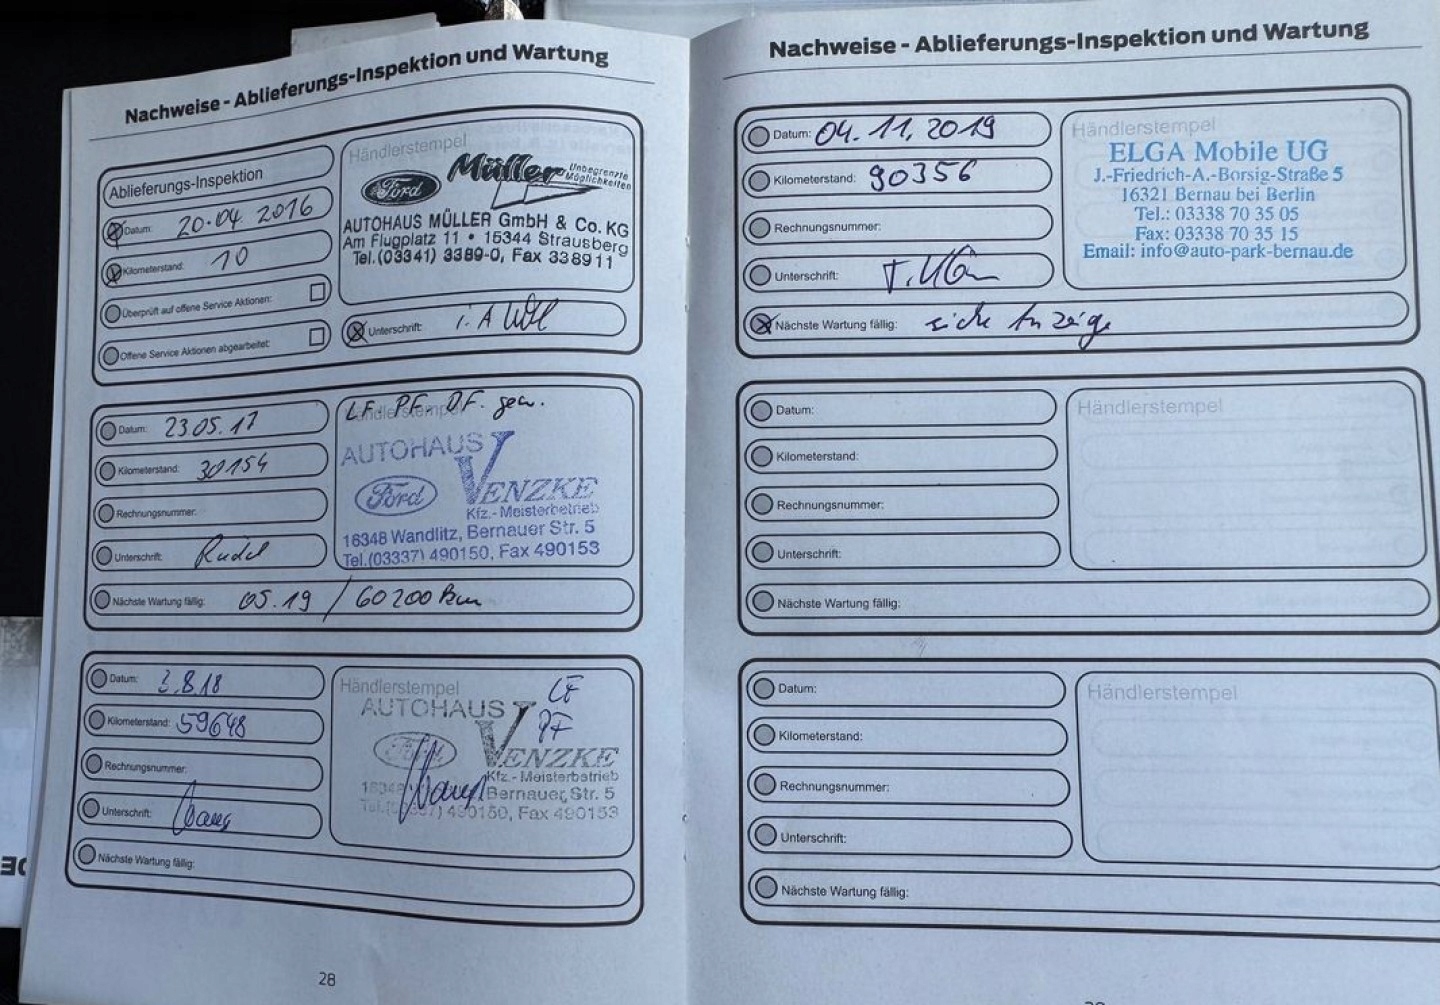 Nachweise - Ablieferungs-Inspektion und Wartung
Ablieferungs-Inspektion
Datum: 20.04.2016
Kilometerstand: 10
Überprüft auf offene Service Aktionen:
Offene Service Aktionen abgearbeitet:
Händlerstempel
Ford Müller Unbegrenzte Möglichkeiten
AUTOHAUS MÜLLER GmbH & Co. KG
Am Flugplatz 11 • 15344 Strausberg
Tel.(03341) 3389-0, Fax 338911 9
Unterschrift: i. A
Datum: 23.05.17
Kilometerstand: 30154
Rechnungsnummer:
Unterschrift: Rudel
Händlerstempel
LF. PF. DF. gew.
AUTOHAUS
Ford VENZKE
Kfz.-Meisterbetrieb
16348 Wandlitz, Bernauer Str. 5
Tel.(03337) 490150, Fax 490153
Nächste Wartung fällig: 05.19 / 60200 km
Datum: 2.8.18
Kilometerstand: 59648
Rechnungsnummer:
Unterschrift:
Händlerstempel
LF
PF
AUTOHAUS
Ford VENZKE
Kfz.-Meisterbetrieb
16348 Bernauer Str. 5
Tel.(03337) 490150, Fax 490153
Nächste Wartung fällig:
28
Nachweise - Ablieferungs-Inspektion und Wartung
Datum: 04.11.2019
Kilometerstand: 90356
Rechnungsnummer:
Unterschrift:
Händlerstempel
ELGA Mobile UG
J.-Friedrich-A.-Borsig-Straße 5
16321 Bernau bei Berlin
Tel.: 03338 70 35 05
Fax: 03338 70 35 15
Email: info@auto-park-bernau.de
Nächste Wartung fällig: siehe Anzeige
Datum:
Kilometerstand:
Rechnungsnummer:
Unterschrift:
Händlerstempel
Nächste Wartung fällig:
Datum:
Kilometerstand:
Rechnungsnummer:
Unterschrift:
Händlerstempel
Nächste Wartung fällig: